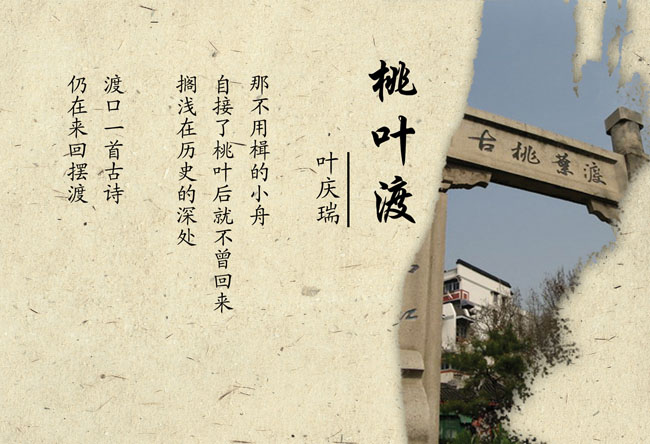 桃叶渡
叶庆瑞
那不用楫的小舟
自接了桃叶后就不曾回来
搁浅在历史的深处
渡口一首古诗
仍在来回摆渡
古桃葉渡